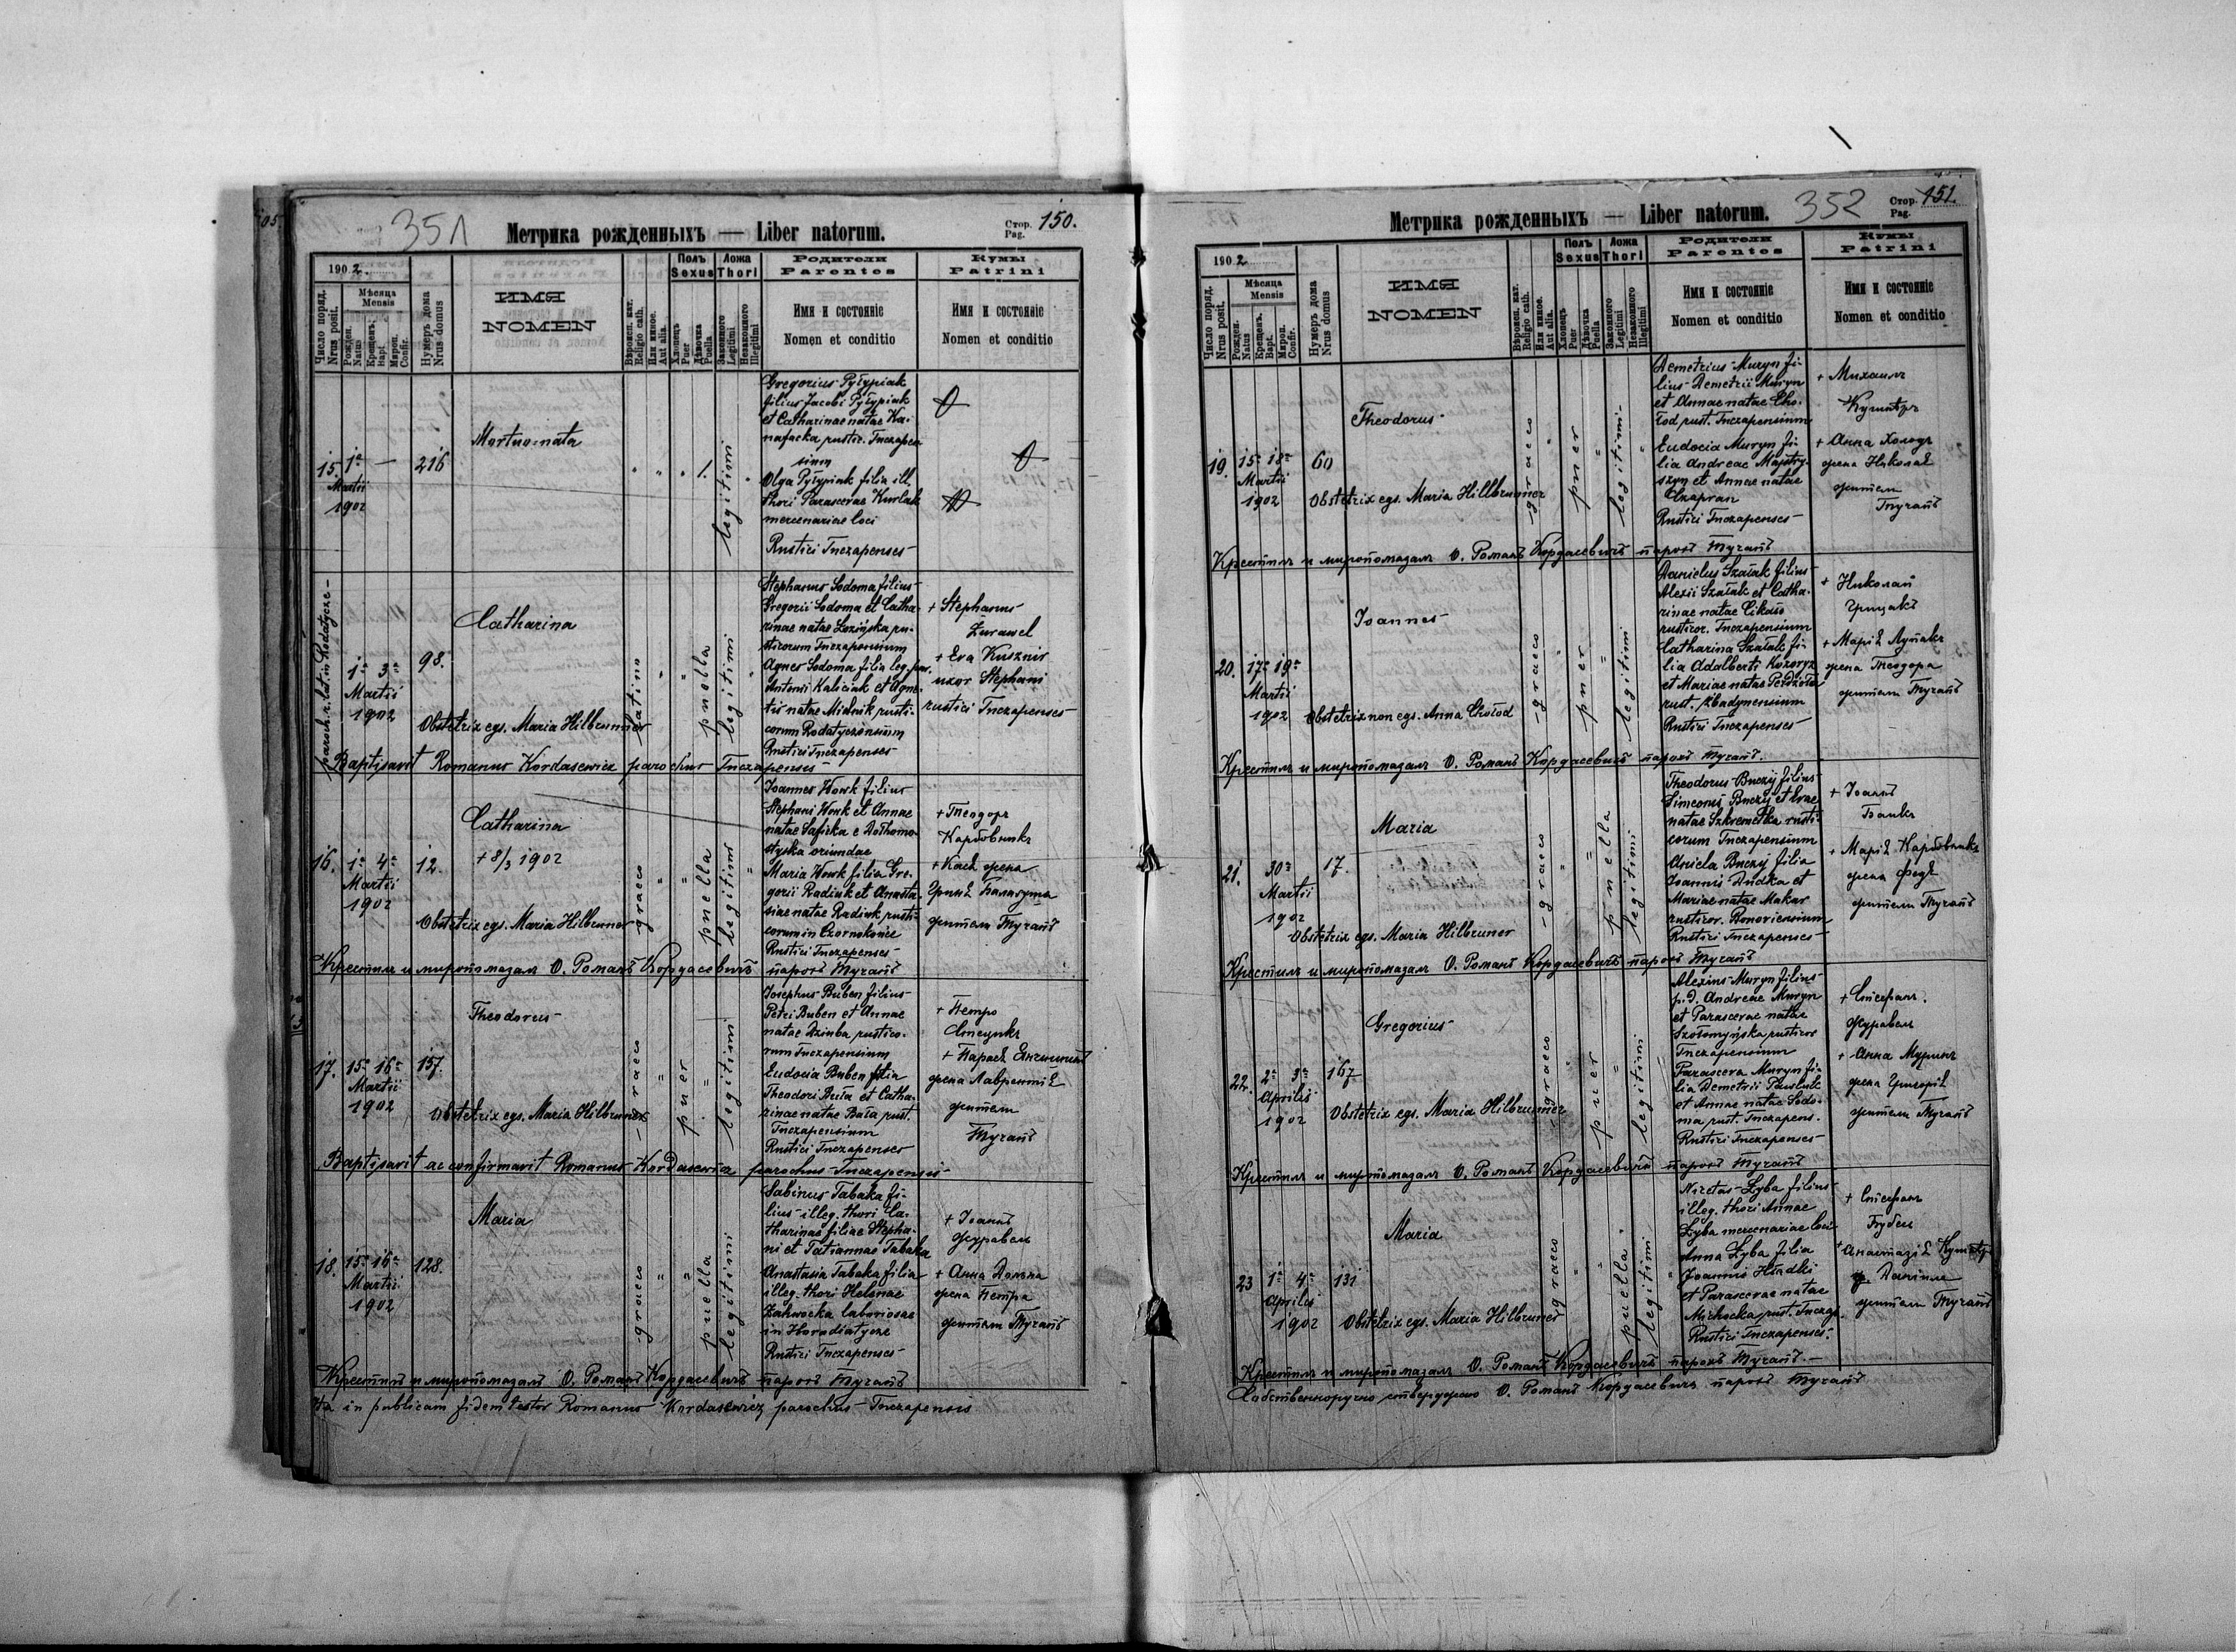 351
Метрика рожденныхъ — Liber natorum.
Стор. Pag. 150.
1902.
Число поряд. Nrus posit.
Мѣсяца Mensis
Рожден. Natus
Крещенъ. Bapt.
Миров. Confir.
Нумеръ дома Nrus domus
ИМЯ
NOMEN
Вѣроисп. кат. Religio cath.
Или инное. Aut alia.
Полъ Sexus
Хлопецъ Puer
Дѣвочка Puella
Ложа Thori
Законного Legitimi
Незаконного Illegitimi
Родители
Parentes
Имя и состоянiе
Nomen et conditio
Кумы
Patrini
Имя и состоянiе
Nomen et conditio
15. 1a — 216
Martii
1902
Mortuo-nata
legitimi
Gregorius Pyłypiak
filius Jacobi Pyłypiak
et Catharinae natae Ka-
nafacka rustic. Tuczapen
sium
Olga Pyłypiak filia ill.
thori Parascevae Kurlak
mercenariae loci
Rustici Tuczapenses-
paroch. r. lat. in Rodatycze-
1a 3a 98.
Martii
1902
Catharina
Obstetrix egs. Maria Hilbrunner
latino
puella
legitimi
Stephanus Sodoma filius-
Gregorii Sodoma et Catha-
rinae natae Łozińska ru-
sticorum Tuczapensium
Agnes Sodoma filia leg.
Antonii Kaliciak et Agne-
tis natae Mielnik rusti-
corum Rodatyczensium
Rustici Tuczapenses
+ Stephanus
Żurawel
+ Eva Kusznir
uxor Stephani
rustici Tuczapenses-
Baptisavit Romanus Kordasewicz parochus Tuczapensis-
16. 1a 4a 12.
Martii
1902
Catharina
+ 8/3 1902
Obstetrix egs. Maria Hilbruner
graeco
puella
legitimi
Joannes Wowk filius
Stephani Wowk et Annae
natae Safirka e Dołhomo-
styska oriundae
Maria Wowk filia Gre-
gorii Radiuk et Anasta-
siae natae Radiuk rusti-
corum in Czornokońce
Rustici Tuczapenses
+ Теодоръ
Карбовникъ
+ Кася жена
Гринѣ Баламута
жители Тучапъ
Крестилъ и миропомазалъ О. Романъ Кордасевичъ парохъ Тучапъ
17. 15a 16a 157.
Martii
1902
Theodorus-
Obstetrix egs. Maria Hilbruner
graeco
puer
legitimi
Josephus Buben filius-
Petri Buben et Annae
natae Dziuba rustico-
rum Tuczapensium
Eudocia Buben filia
Theodori Buła et Catha-
rinae natae Buła rust.
Tuczapensium
Rustici Tuczapenses
+ Петро
Стецикъ
жена Лаврентiѣ
жители
Тучапъ
Baptisavit ac confirmavit Romanus Kordasewicz parochus Tuczapensis-
18. 15a 16a 128.
Martii
1902
Maria
graeco
puella
legitimi
Sabinus Tabaka fi-
lius illeg. thori Ca-
tharinae filiae Stepha-
ni et Tatiannae Tabaka
Anastasia Tabaka filia
illeg. thori Helenae
Zahwocka laboriosae
in Horodiatycze
Rustici Tuczapenses-
+ Іоаннъ
Журавель
+ Анна Дольна
жена Петра
жители Тучапъ
Крестилъ и миропомазалъ О. Романъ Кордасевичъ парохъ Тучапъ
Ita in publicam fidem testor Romanus Kordasewicz parochus Tuczapensis
352
Метрика рожденныхъ — Liber natorum.
Стор. Pag. 151.
1902
Число поряд. Nrus posit.
Мѣсяца Mensis
Рожден. Natus
Крещенъ. Bapt.
Миров. Confir.
Нумеръ дома Nrus domus
ИМЯ
NOMEN
Вѣроисп. кат. Religio cath.
Или инное. Aut alia.
Полъ Sexus
Хлопецъ Puer
Дѣвочка Puella
Ложа Thori
Законного Legitimi
Незаконного Illegitimi
Родители
Parentes
Имя и состоянiе
Nomen et conditio
Кумы
Patrini
Имя и состоянiе
Nomen et conditio
19. 15a 18a 60
Martii
1902
Theodorus-
Obstetrix egs. Maria Hillbrunner
graeco
puer
legitimi
Demetrius Muryn fi-
lius Demetrii Muryn
et Annae natae Cho-
łod rust. Tuczapensium
Eudocia Muryn fi-
lia Andreae Majstry-
szyn et Annae natae
Czapran
Rustici Tuczapenses-
+ Михаилъ
Кушнѣръ
+ Анна Холодъ
жена Николаѣ
жители
Тучапъ
Крестилъ и миропомазалъ О. Романъ Кордасевичъ парохъ Тучапъ
20. 17a 19a
Martii
1902
Joannes-
Obstetrix non egs. Anna Chołod
graeco
puer
legitimi
Danielus Szałak filius-
Alexii Szałak et Catha-
rinae natae Cikało
rusticor. Tuczapensium
Catharina Szałak fi-
lia Adalberti Kozoryz
et Mariae natae Perdzioła
rust. Zbadynensium
Rustici Tuczapenses-
+ Николай
Грицакъ
+ Марiѣ Лупакъ
жена Теодора
жители Тучапъ
Крестилъ и миропомазалъ О. Романъ Кордасевичъ парохъ Тучапъ.
21. 30a 17.
Martii
1902
Maria
Obstetrix egs. Maria Hilbruner
graeco
puella
legitimi
Theodorus Buczij filius-
Simeonis Buczij et Evae
natae Szkremetka rusti-
corum Tuczapensium
Aniela Buczij filia
Joannis Dudka et
Mariae natae Makar
rusticor. Bonoviensium
Rustici Tuczapenses-
+ Іоаннъ
+ Марiѣ Карбовникъ
жена Федѣ
жители Тучапъ
Крестилъ и миропомазалъ О. Романъ Кордасевичъ парохъ Тучапъ
22. 2a 3a 167
Aprilis
1902
Gregorius-
Obstetrix egs. Maria Hilbrunner
graeco
puer
legitimi
Alexius Muryn filius-
p. d. Andreae Muryn
et Parascevae natae
Szołomyńska rusticor
Tuczapensium
Parasceva Muryn fi-
lia Demetrii Pawluk
et Annae natae Sodo-
ma rust. Tuczapens.
Rustici Tuczapenses-
+ Стефанъ
Журавель
+ Анна Муринъ
жена Григорiѣ
жители Тучапъ
Крестилъ и миропомазалъ О. Романъ Кордасевичъ парохъ Тучапъ
23 1a 4a 131
Aprilis
1902
Maria
Obstetrix egs. Maria Hilbruner
graeco
puella
legitimi
Nicetas Zyba filius-
illeg. thori Annae
Zyba mercenariae loci
Anna Zyba filia
Joannis Hładki
et Parascevae natae
Michocka rust. Tuczap.
Rustici Tuczapenses.
+ Стефанъ
Бубенъ
+ Анастазiѣ Кушнѣръ
ж. Данiила
жители Тучапъ
Крестилъ и миропомазалъ О. Романъ Кордасевичъ парохъ Тучапъ.-
Собственноручно ствержаю О. Романъ Кордасевичъ парохъ Тучапъ